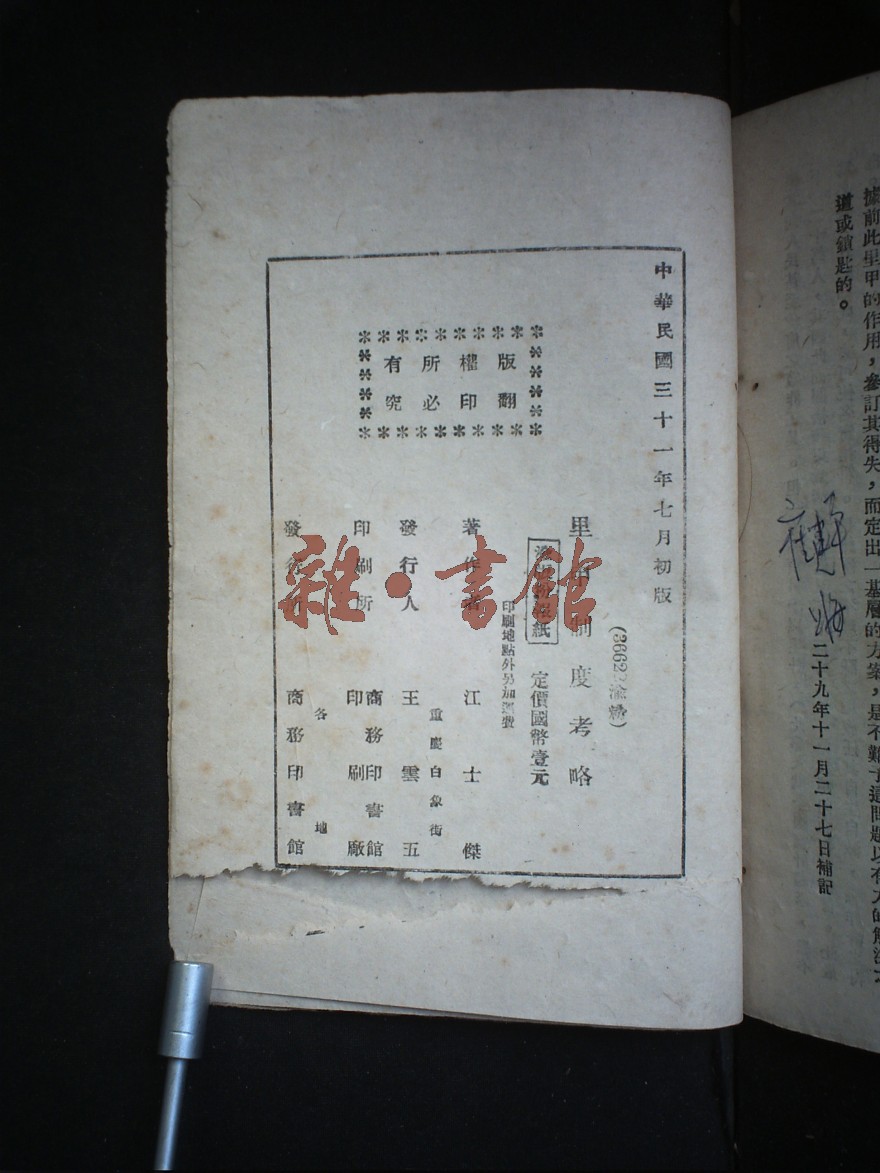 據前此里甲的作用，參訂其得失，而定出一基層的方案，是不難
道或鎖匙的。
二十九年十一月二十七日補記
中華民國三十一年七月初版
版權所有
翻印必究
里 制度考略
定價國幣壹元
印刷地點外另加運費
著作 江士傑
重慶白象街
發行人 王雲五
印刷所 商務印書館
印刷廠
各地
發行所 商務印書館
雜·書館